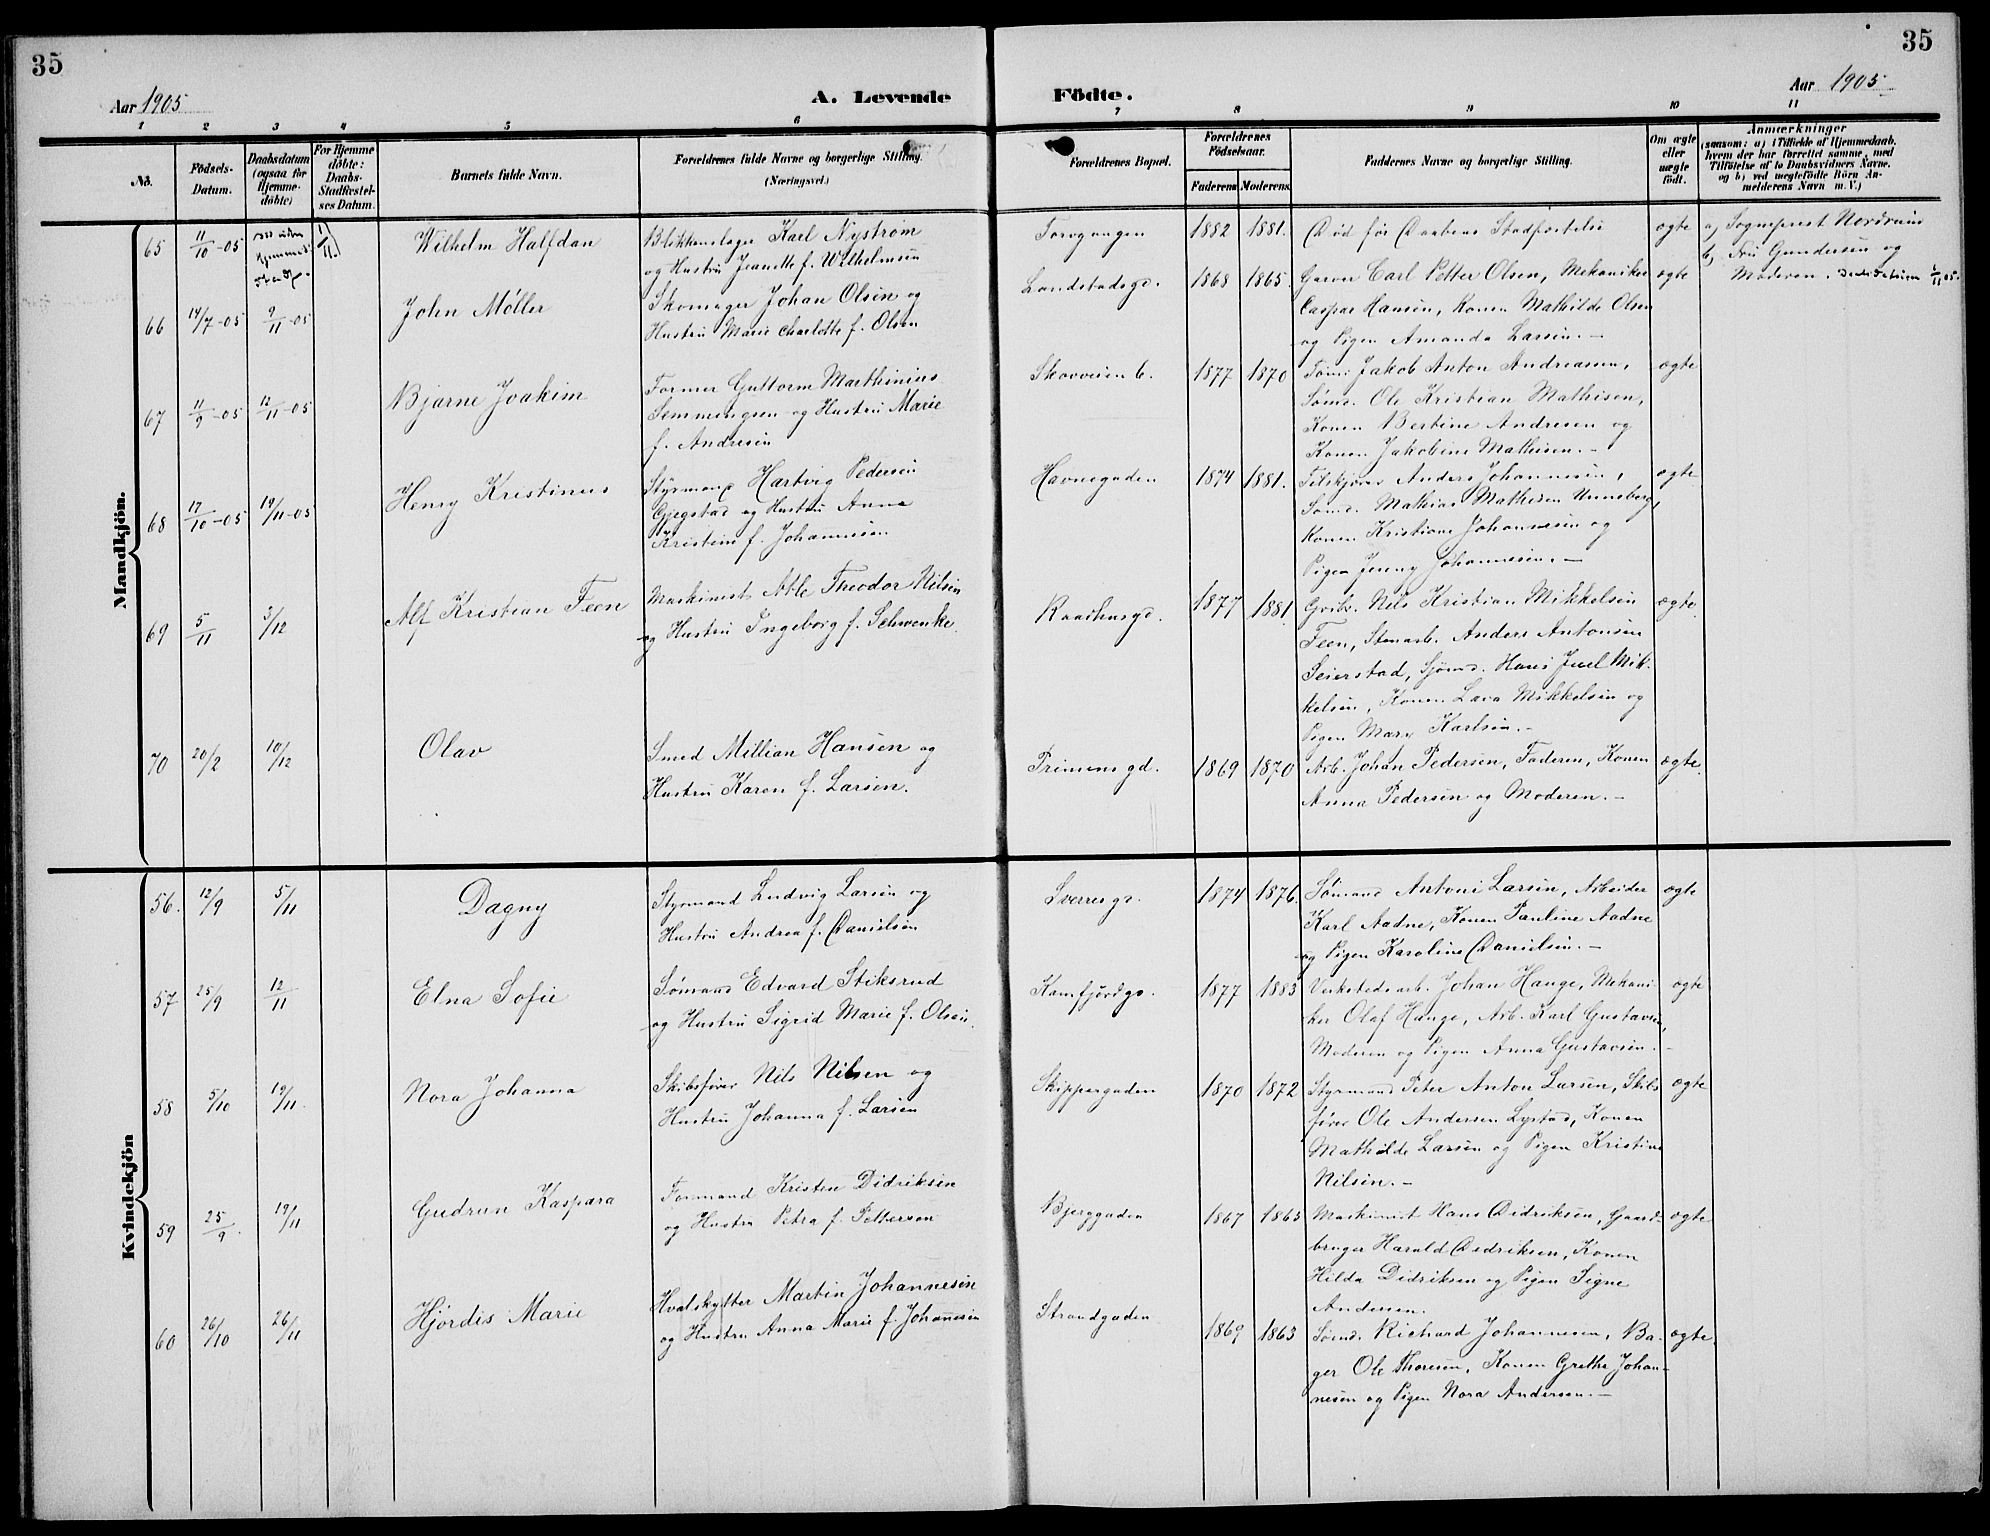 35
35
Aar 1905
A. Levende Födte.
Aar 1905
1 2 3 4 5 6 7 8 9 10 11
No.
Födsels-Datum.
Daabsdatum (ogsaa for Hjemme-döbte)
For Hjemme döbte: Daabs-Stadfæstel-ses Datum.
Barnets fulde Navn.
Forældrenes fulde Navne og borgerlige Stilling.
(Næringsvei.)
Forældrenes Bopæl.
Forældrenes Födselsaar.
Faderens Moderens
Faddernes Navne og borgerlige Stilling.
Om ægte eller uægte födt.
Anmærkninger
(saasom: a) i Tilfælde af Hjemmedaab,
hvem der har forrettet samme, med
Tilföielse af to Daabsvidners Navne,
og b) ved uægtefödte Börn An-
melderens Navn m. V.)
Mandkjön.
65 11/10-05 1/11 Wilhelm Halfdan
Blikkenslager Karl Nyström
og Hustru Jeanette f. Wilhelmsen
Torvgangen 1882 1881.
Död før Daabens Stadfæstelse
ægte
a, Sogneprest Nordrum
b, Fru Gundersen og
Moderen. 1/11 05.
66 14/7-05 9/11-05 John Møller
Skomager Johan Olsen og
Hustru Marie Charlotte f. Olsen
Landstadsgd. 1868 1865.
Garver Carl Petter Olsen, Mekaniker
Caspar Hansen, Konen Mathilde Olsen
og Pigen Amanda Larsen.-
ægte
67 11/9-05 12/11-05 Bjarne Joakim
Former Guttorm Marthinius
Semmingsen og Hustru Marie
f. Andresen
Skovveien 6. 1877 1870
Tøm. Jakob Anton Andreasen,
Sømd. Ole Kristian Mathisen,
Konen Bertine Andresen og
Konen Jakobine Mathisen.-
ægte
68 17/10-05 19/11-05 Henry Kristinus
Styrmand Hartvig Pedersen
Gjegstad og Hustru Anna
Kristine f. Johannesen
Havnegaden 1874 1881.
Anders Johannesen,
Sømd. Mathias Mathisen Unneberg,
Konen Kristiane Johannesen og
Pigen Jenny Johannesen.-
ægte
69 5/11 3/12 Alf Kristian Feen
Maskinist Atle Theodor Nilsen
og Hustru Ingeborg f. Schwenke
Raadhusgd. 1877 1881
Grbr. Nils Kristian Mikkelsen
Feen, Stenarb. Anders Antonsen
Seierstad, Sjömd. Hans Juel Mik-
kelsen, Konen Lava Mikkelsen og
Pigen Mary Karlsen.-
ægte.
70 20/2 10/12 Olav
Smed Millian Hansen og
Hustru Karen f. Larsen.
Prinsensgd. 1869 1870
Arb. Johan Pedersen, Faderen, Konen
Anna Pedersen og Moderen.-
ægte.
Kvindekjön
56. 12/9 5/11 Dagny
Styrmand Ludvig Larsen og
Hustru Andrea f. Danielsen
Sverresgd. 1874 1876.
Sømand Antoni Larsen, Arbeider
Karl Aadne, Konen Pauline Aadne
og Pigen Karoline Danielsen.-
ægte
57 25/9 12/11 Elna Sofie
Sømand Edvard Stiksrud
og Hustru Sigrid Marie f. Olsen.
Kamfjordgd. 1877 1883
Verkstedsarb. Johan Hauge, Mekani-
ker Olaf Hauge, Arb. Karl Gustavsen,
Moderen og Pigen Anna Gustavsen.-
ægte
58 5/10 19/11. Nora Johanna
Skibsfører Nils Nilsen og
Hustru Johanna f. Larsen
Skippergaden 1870 1872
Styrmand Peter Anton Larsen, Skibs
fører Ole Andersen Lystad, Konen
Mathilde Larsen og Pigen Kristine
Nilsen.-
ægte
59 25/9. 19/11 Gudrun Kaspara
Formand Kristen Didriksen
og Hustru Petra f. Pettersen
Bjerggaden 1867 1865
Maskinist Hans Didriksen, Gaard-
bruger Harald Didriksen, Konen
Hilda Didriksen og Pigen Signe
Andersen.
ægte
60 26/10 26/11 Hjørdis Marie
Hvalskytter Martin Johannesen
og Hustru Anna Marie f. Johannesen
Strandgaden 1869 1863
Sømd. Richard Johannesen, Ba-
ger Ole Thoresen, Konen Grethe Johan-
nesen og Pigen Nora Andersen.-
ægte.